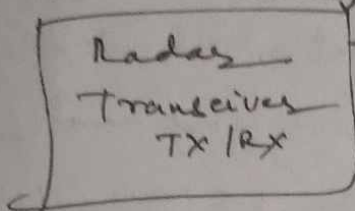 Radar
Transeiver
TX/RX